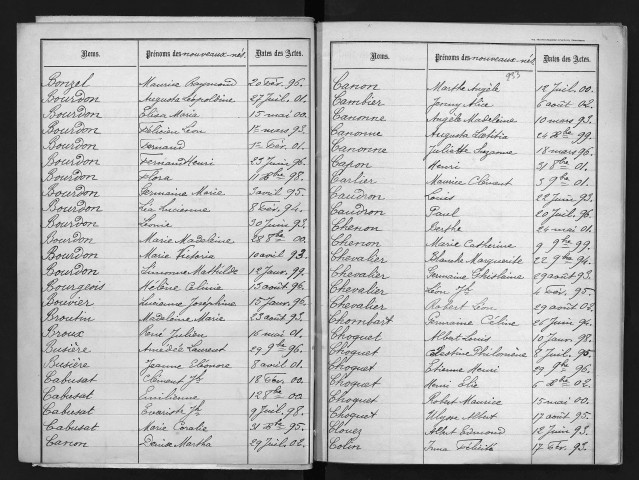 Noms. Prénoms des nouveaux-nés. Dates des Actes.
Bonzel Maurice Raymond 20 Fév. 96.
Bourdon Augusta Léopoldine 27 Juil. 01.
Bourdon Elisa Marie 15 mai 00.
Bourdon Félicien Léon 1er mars 93.
Bourdon Fernand 1er Fév. 01.
Bourdon Fernand Henri 23 Juin 96.
Bourdon Flora 11 Xbre 98.
Bourdon Germaine Marie avril 95.
Bourdon Léa Lucienne 8 Fév. 94.
Bourdon Léonie 30 Juin 93.
Bourdon Marie Madeleine 28 8bre 00.
Bourdon Marie Victoria 10 avril 93.
Bourdon Simonne Mathilde 12 Janv. 99.
Bourgeois Hélène Célinie 13 août 96.
Bouvier Lucienne Joséphine 15 Janv. 96.
Broutin Madeleine Marie 23 août 93.
Broux René Julien 16 mai 01.
Busière Amédée Laurent 29 9bre 96.
Busière Jeanne Eléonore 8 avril 01.
Cabusat Clément Jh 18 Fév. 00.
Cabusat Emilienne 12 8bre 00.
Cabusat Evariste Jh 9 Juil. 98.
Cabusat Marie Coralie 31 Xbre 95.
Canon Denise Martha 29 Juil. 02.
Noms. Prénoms des nouveaux-nés Dates des Actes.
993
Canon Marthe Angèle 12 Juil. 00.
Cambier Jenny Alice 6 août 02.
Canonne Angèle Madeleine 10 mars 93.
Canonne Augusta Laetitia 24 Xbre 99.
Canonne Juliette Suzanne 18 mars 96.
Caron Henri 31 8bre 01.
Carlier Maurice Clément 3 9bre 01.
Caudron Louis 22 Juin 93.
Caudron Paul 20 Juil. 96.
Chenon Berthe 24 mai 01.
Chenon Marie Catherine 9 9bre 99.
Chevalier Blanche Marguerite 22 9bre 94.
Chevalier Germaine Ghislaine 29 août 93.
Chevalier Léon Jh 4 Fév. 95
Chevalier Robert Léon 29 août 02.
Chombart Germaine Céline 26 Juin 94.
Choquet Albert Louis 10 Janv. 98.
Choquet Célestine Philomène 8 Juil. 95.
Choquet Etienne Henri 29 9bre 96.
Choquet Henri Elie 6 Xbre 02.
Choquet Robert Maurice 15 mai 00.
Choquet Ulysse Albert 17 août 95.
Clouez Albert Edmond 12 Juin 93.
Colin Irma Félicité 17 Fév. 93.